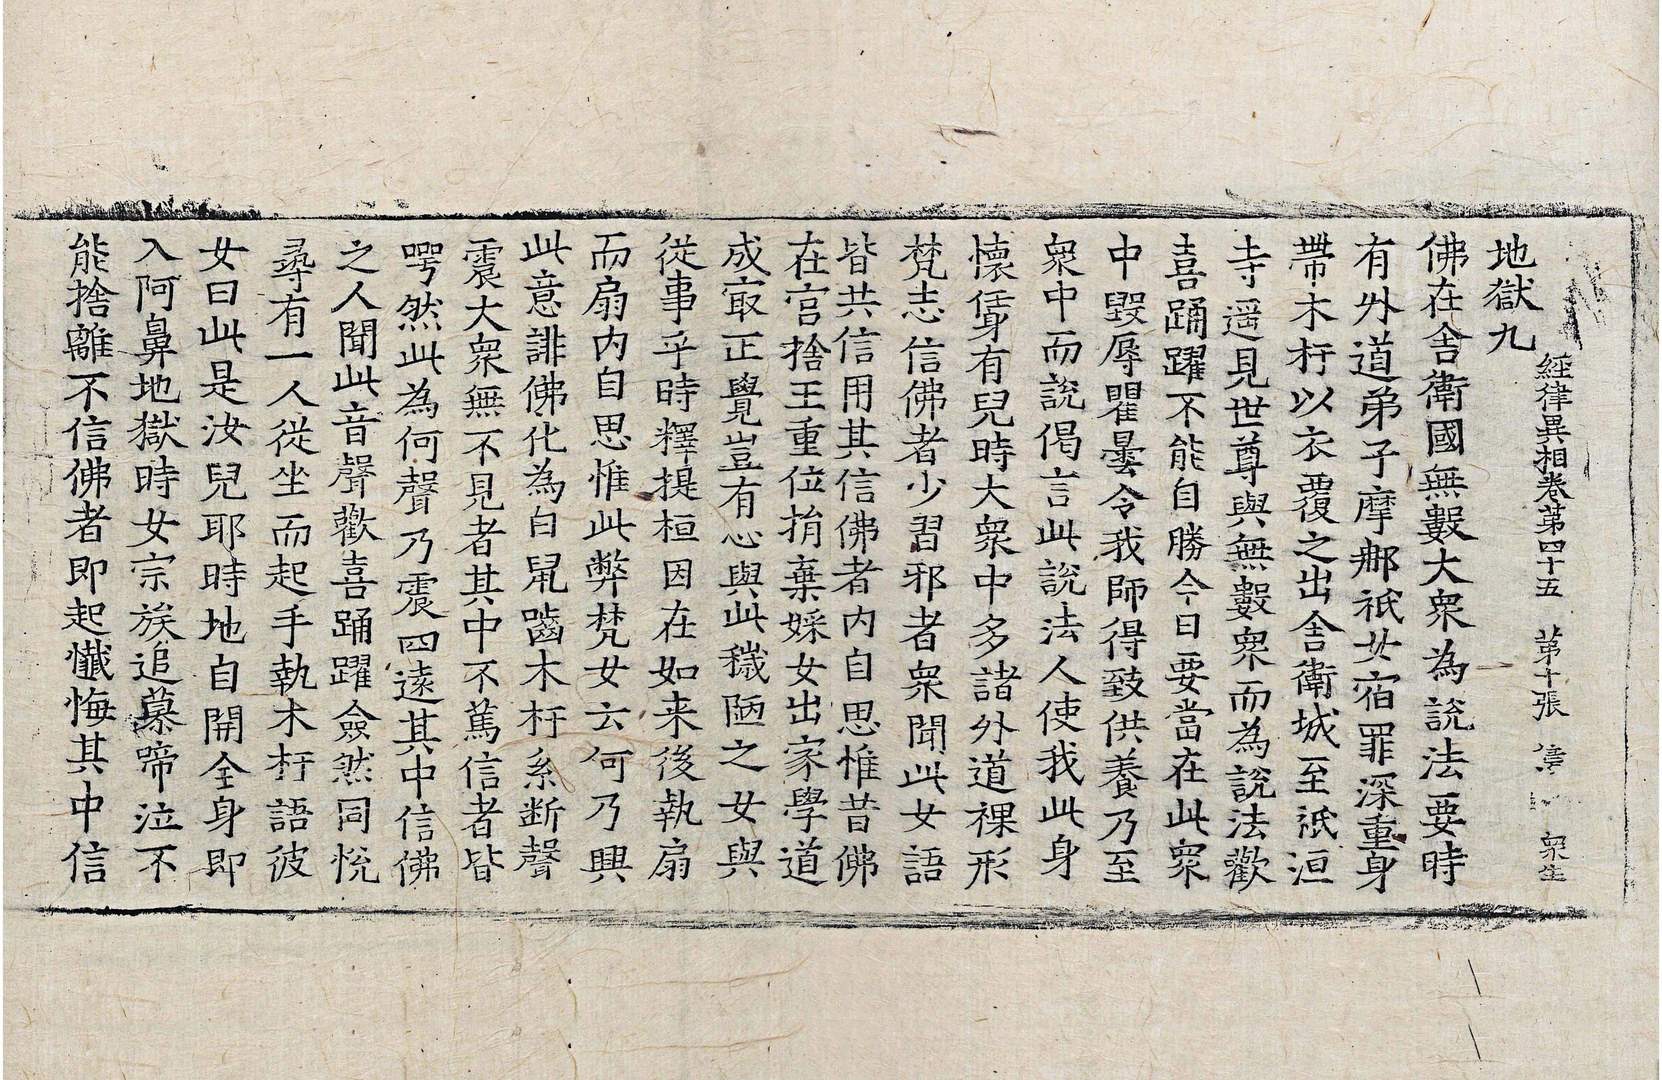 經律異相卷第四十五 第十張 衆生
地獄九
佛在舍衛國無數大衆為說法要時
有外道弟子摩郍祇女宿罪深重身
帶木杅以衣覆之出舍衛城至祇洹
寺遥見世尊與無數衆而為說法歡
喜踊躍不能自勝今日要當在此衆
中毀辱瞿曇令我師得致供養乃至
衆中而說偈言此說法人使我此身
懷㑗有兒時大衆中多諸外道裸形
梵志信佛者少習邪者衆聞此女語
皆共信用其信佛者内自思惟昔佛
在宫捨王重位捐棄婇女出家學道
成㝡正覺豈有心與此穢陋之女與
從事乎時釋提桓因在如来後執扇
而扇内自思惟此弊梵女云何乃興
此意誹佛化為白鼠齧木杅系断聲
震大衆無不見者其中不篤信者皆
愕然此為何聲乃震四遠其中信佛
之人聞此音聲歡喜踊躍僉然同恱
尋有一人從坐而起手執木杅語彼
女曰此是汝兒耶時地自開全身即
入阿鼻地獄時女宗族追慕啼泣不
能捨離不信佛者即起懺悔其中信